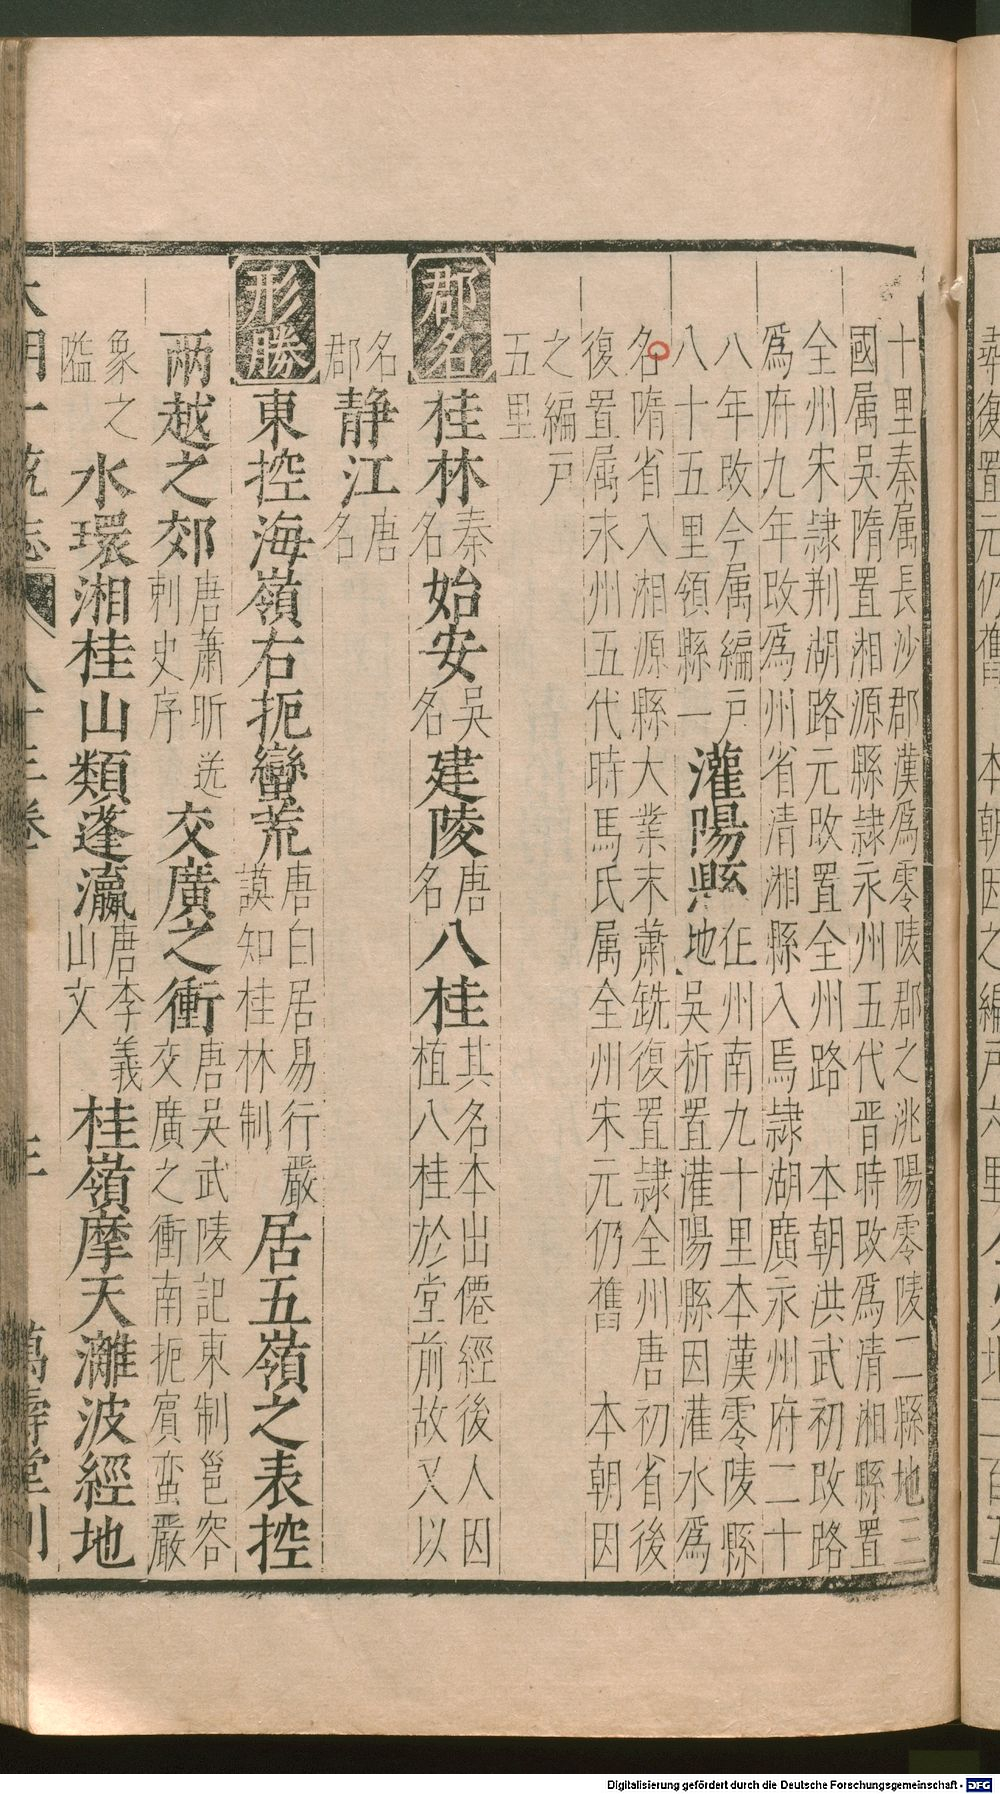 復置元仍舊 本朝因之編戶六里
十里秦属長沙郡漢爲零陵郡之洮陽零陵二縣地三
國属吳隋置湘源縣隷永州五代晋時改爲清湘縣置
全州宋隷荆湖路元改置全州路 本朝洪武初改路
爲府九年改爲州省清湘縣入焉隷湖廣永州府二十
八年改今属編戶八十五里領縣一 灌陽縣 在州南九十里本漢零陵縣地吳析置灌陽縣因灌水爲
名隋省入湘源縣大業末蕭銑復置隷全州唐初省後
復置属永州五代時馬氏属全州宋元仍舊 本朝因
之編戶五里
郡名 桂林 秦名 始安 吳名 建陵 唐名 八桂 其名本出僊經後人因植八桂於堂前故又以
名郡 靜江 唐名
形勝 東控海嶺右扼蠻荒 唐白居易行嚴謨知桂林制 居五嶺之表控
兩越之郊 唐蕭昕送刺史序 交廣之衝 唐吳武陵記東制邕容交廣之衝南扼賓蛮嚴
象之嗌 水環湘桂山類蓬瀛 唐李義山文 桂嶺摩天灕波經地
大明一統志 八十三卷 萬壽堂刊
Digitalisierung gefördert durch die Deutsche Forschungsgemeinschaft - DFG